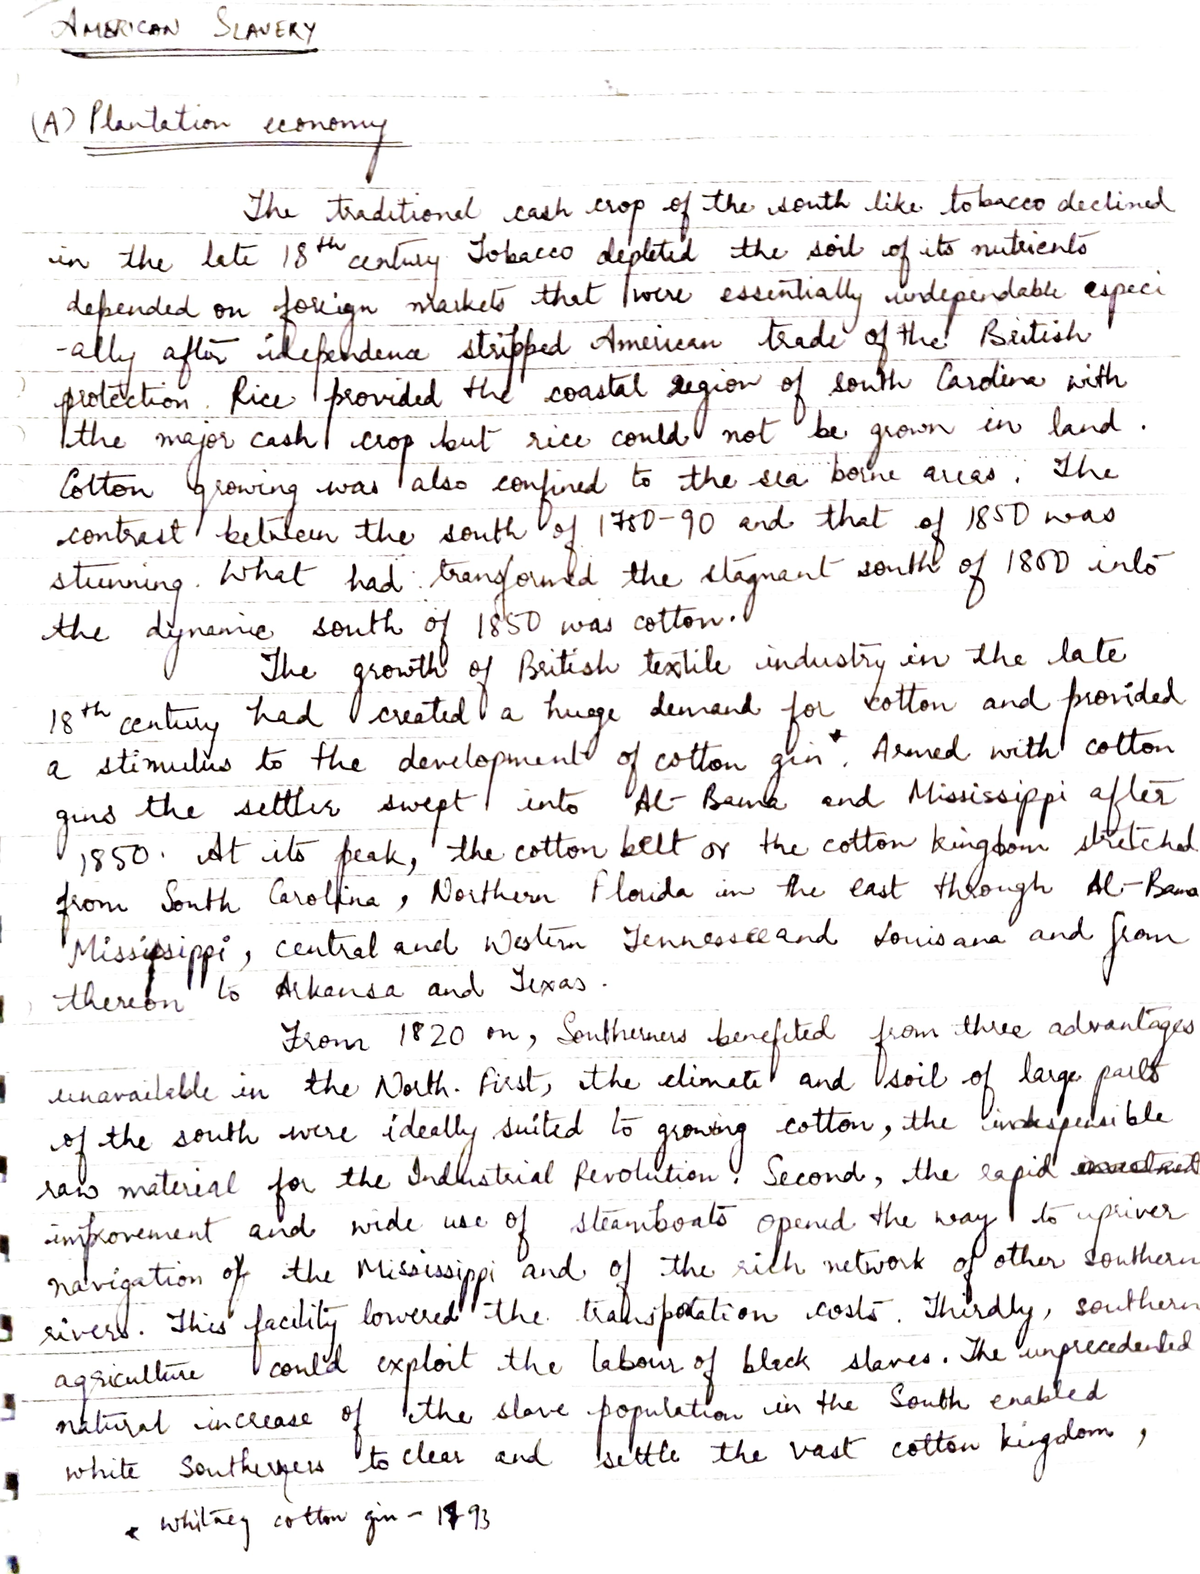 AMERICAN SLAVERY
(A) Plantation economy
The traditional cash crop of the south like tobacco declined
in the late 18th century Tobacco depleted the soil of its nutrients
depended on foreign markets that were essentially undependable especi
-ally after idependence stripped American trade of the British
protection. Rice provided the coastal region of south Carolina with
the major cash crop but rice could not be grown in land.
Cotton growing was also confined to the sea borne areas. The
contrast between the south of 1780-90 and that of 1850 was
stunning. What had transformed the stagnant south of 1800 into
the dynamic south of 1850 was cotton.
The growth of British textile industry in the late
18th century had created a huge demand for cotton and provided
a stimulus to the development of cotton gin*. Armed with cotton
gins the settler swept into Al-Bama and Mississippi after
1850. At its peak, the cotton belt or the cotton kingdom stretched
from South Carolina, Northern Florida in the east through Al-Bama
Mississippi, central and Western Tennessee and Louisana and from
thereon to Arkansa and Texas.
From 1820 on, Southerners benefited from three advantages
unavailable in the North. First, the climate and soil of large parts
of the south were ideally suited to growing cotton, the indespensible
raw material for the Industrial Revolution. Second, the rapid
improvement and wide use of steamboats opened the way to upriver
navigation of the Mississippi and of the rich network of other southern
rivers. This facility lowered the transpotation costs. Thirdly, southern
agriculture could exploit the labour of black slaves. The unprecedented
natural increase of the slave population in the South enabled
white Southerners to clear and settle the vast cotton kingdom,
* Whitney cotton gin - 1793